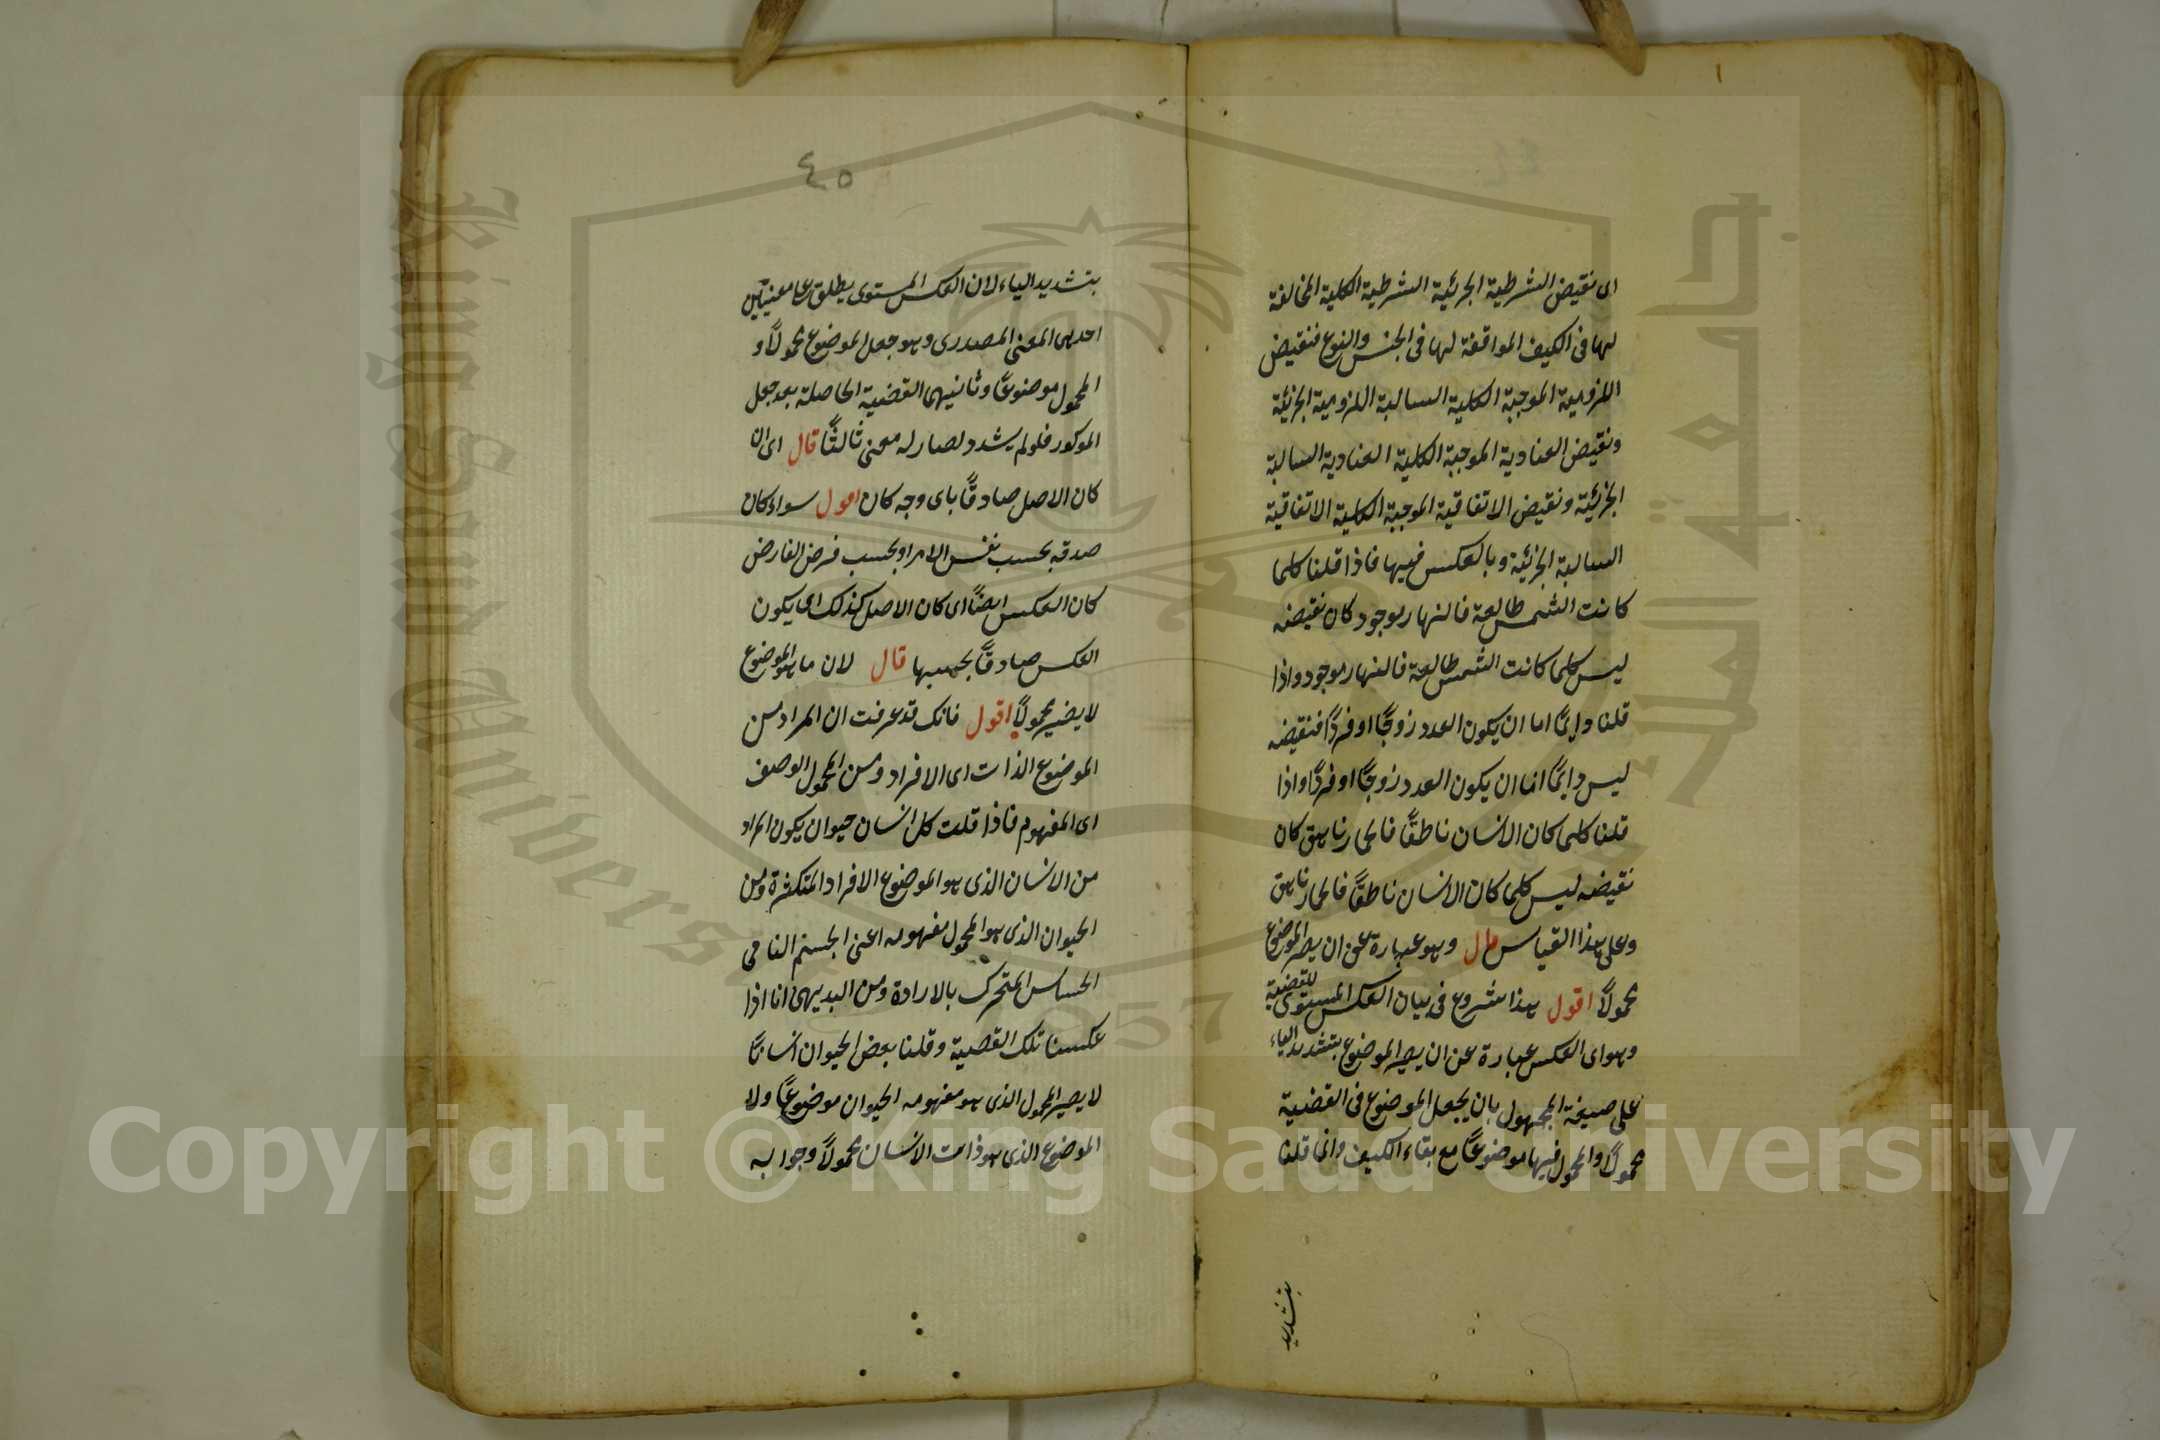 اى نقيض الشرطية الجزئية الشرطية الكلية المخالفة
لها فى الكيف الموافقة لها فى الجنس والنوع فنقيض
اللزومية الموجبة الكلية السالبة اللزومية الجزئية
ونقيض العنادية الموجبة الكلية العنادية السالبة
الجزئية ونقيض الاتفاقية الموجبة الكلية الاتفاقية
السالبة الجزئية وبالعكس فيها فاذا قلنا كلما
كانت الشمس طالعة فالنهار موجود كان نقيضه
ليس كلما كانت الشمس طالعة فالنهار موجود واذا
قلنا دايمًا اما ان يكون العدد زوجًا او فردًا فنقيضه
ليس دايمًا اما ان يكون العدد زوجًا او فردًا واذا
قلنا كلما كان الانسان ناطقًا فالحمار ناهق كان
نقيضه ليس كلما كان الانسان ناطقًا فالحمار ناهق
وعلى هذا القياس قال وهو عبارة عن ان يصير الموضوع
محمولًا اقول هذا شروع فى بيان العكس المستوى للقضية
وهو اى العكس عبارة عن ان يصير الموضوع بتشديد الياء
على صيغة المجهول بان يجعل الموضوع فى القضية
محمولًا والمحمول فيها موضوعًا مع بقاء الكيف وانما قلنا
بتشديد
٤٥
بتشديد الياء لان العكس المستوى يطلق على معنيين
احدهما المعنى المصدرى وهو جعل الموضوع محمولًا و
المحمول موضوعًا وثانيهما القضية الحاصلة بعد جعل
المذكور فلو لم يشدد لصار له معنى ثالثًا قال اى ان
كان الاصل صادقًا باى وجه كان اقول سواء كان
صدقه بحسب نفس الامر او بحسب فرض الفارض
كان العكس ايضًا اى كان الاصل كذلك اى يكون
العكس صادقًا بحسبها قال لان ما هو الموضوع
لا يصير محمولًا اقول فانك قد عرفت ان المراد من
الموضوع الذات اى الافراد ومن المحمول الوصف
اى المفهوم فاذا قلت كل انسان حيوان يكون المراد
من الانسان الذى هو الموضوع الافراد المتكثرة ومن
الحيوان الذى هو المحمول مفهومه اعنى الجسم النامى
الحساس المتحرك بالارادة ومن البديهى انا اذا
عكسنا تلك القضية وقلنا بعض الحيوان انسانًا
لا يصير المحمول الذى هو مفهومه الحيوان موضوعًا ولا
الموضوع الذى هو ذات الانسان محمولًا وجوابه
King Saud University
جامعة الملك
1957
Copyright © King Saud University